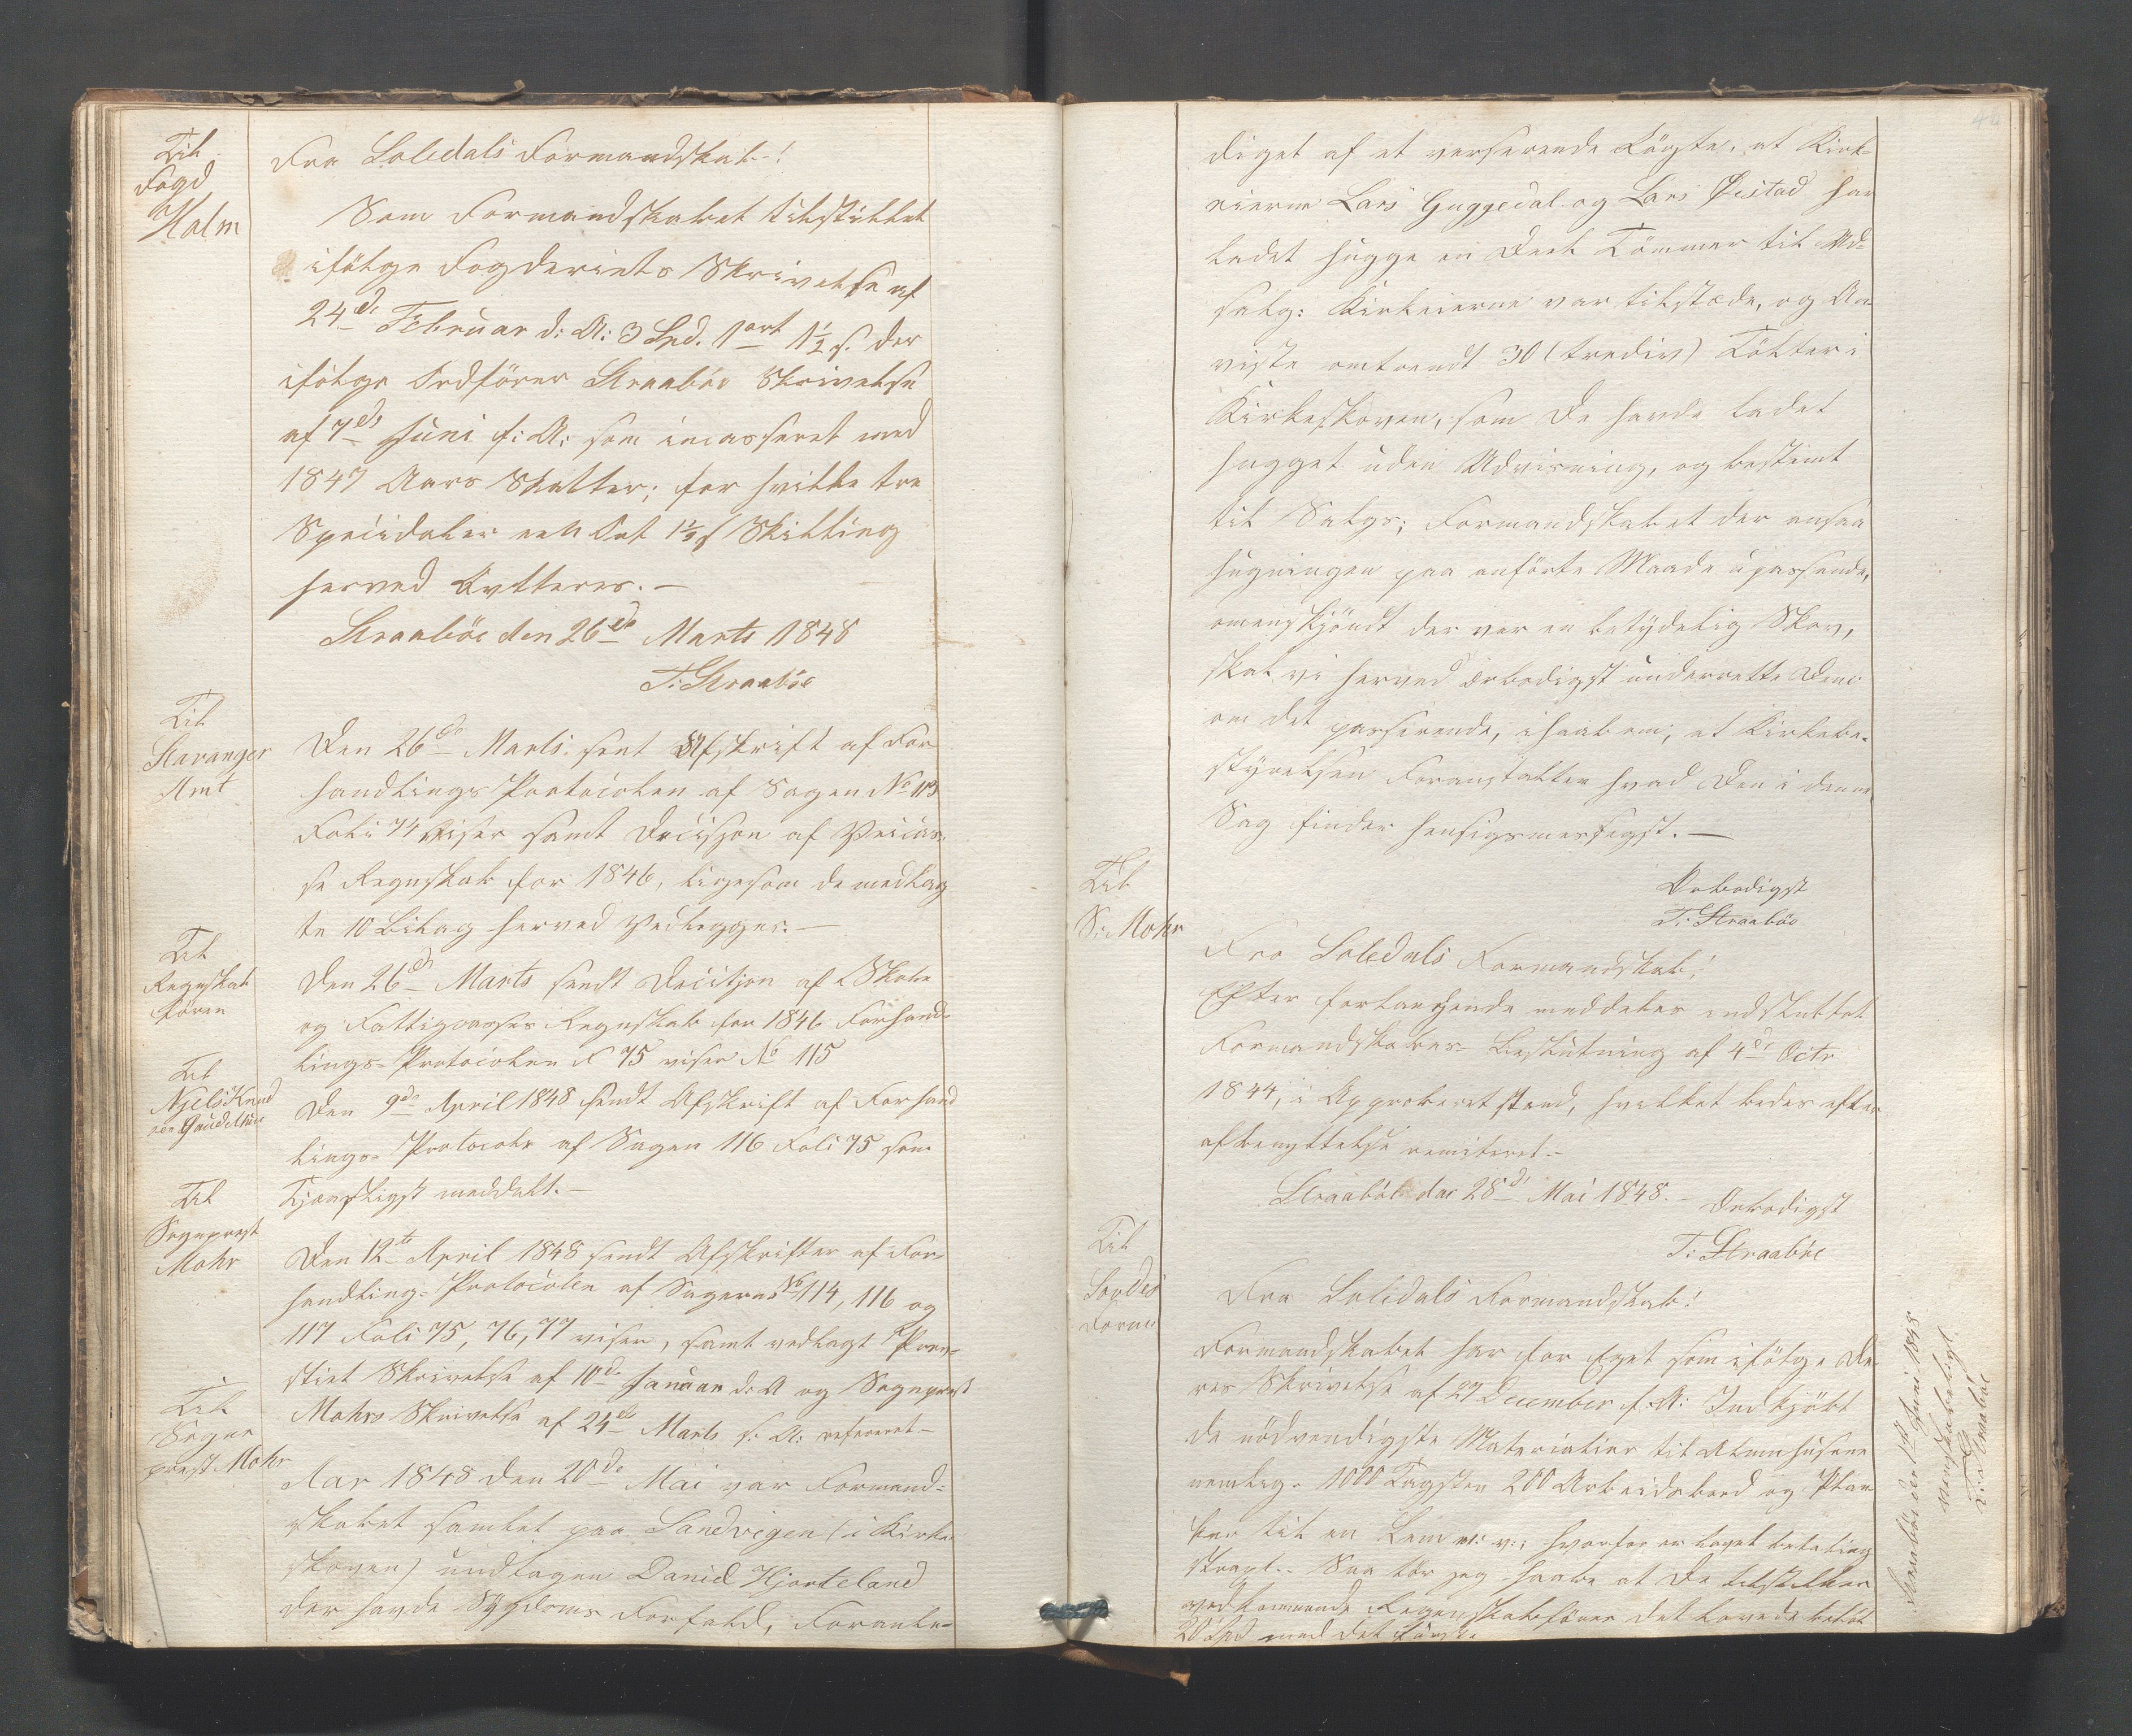 Til
Fogd
Holm
Fra Soledals Formandskab!
Som Formandskabet tilstillet
ifölge Fogderiets Skrivelse af
24de Februar d: A: 3 Spd. 1 ort 1½ s. der
ifölge Ordförer Straaböe Skrivelse
af 7de Juni f: A: som incasseret med
1847 Aars Skatter; for hvilke tre
Speciedaler een Ort 1½ s Skilling
herved Qvitteres. –
Straaböe den 26de Marts 1848
T: Straaböe
Til
Stavanger
Amt
Den 26de Marts sent Afskrift af For
handlings Protocolen af Sagen No 113
Foli 74 viser samt Decisjon af
se Regnskab for 1846, ligesom de medtag
te 10 Bilag herved Vedlegges. –
Til
Regnskab
fören
Den 26de Marts sendt Decisjon af Skole
og Fattigcasses Regnskab for 1846 Forhand-
lings-Protocolen F 75 viser No 115
Til
Njels Knud
sen
Den 9de April 1848 sendt Afskrift af Forhand
lings-Protocole af Sagen 116 Foli 75 som
Tjenstligst meddelt. –
Til
Sogneprest
Mohr
Den 12te April 1848 sendt Afskrifter af For-
handling-Protocolen af Sagerne No 114, 116 og
117 Foli 75, 76, 77 viser, samt vedlagt Prov-
stiet Skrivelse af 10de Januar d: A og Sogneprest
Mohrs Skrivelse af 24de Marts s: A: refereret –
Til
Sogne
prest Mohr
Aar 1848 den 20de Mai var Formand-
skabet samlet paa Sandvigen (i Kirke
skoven) undtagen Daniel Hjorteland
der havde Sygdoms Forfald, Foranle-
46
diget af et verserende Rögte, at Kirk-
eierne Lars Guggedal og Lars Öistad har
ladet hugge en Deel Tömmer til Ud-
salg: Kirkeierne var tilstede, og An
viste omtrendt 30 (trediv) Tölter i
Kirkeskoven, som De havde ladet
hugget uden Udvisning, og bestimt
til Salgs; Formandskabet der ansaa
hugningen paa anförte Maade upassende,
omenskjöndt der var en betydelig Skov,
skal vi herved ærbodigst underrette Dem
om det passerende, ihaab om, at Kirkebe-
styrelsen Foranstalter hvad Den i denne
Sag finder hensigsmessigst. –
Ærbodigst
T: Straaböe
Til
S: Mohr
Fra Soledals Formandskab!
Efter forlangende meddeles indsluttet
Formandskabes-Beslutning af 4de Octr
1844, i Approberet stand, hvilket bedes efter
afbenyttelse remiteret. –
Straaböe den 28de Mai 1848. –
Ærbodigst
T: Straaböe
Til
Fra Soledals Formandskab!
Formandskabet har for Eget som ifölge De-
res Skrivelse af 27 December f: A: Indkjöbt
de nödvendigste Materialier til Almuhusene
nemlig – 1000 Tagsten 200 Arbeidsbord og Plan
ker til en Lem m: v:; hvorfor er lovet betaling
strax. – Saa tör jeg haabe at De tilstiller
vedkommende Regenskabsförer det lovede belöb
20 Spd med det förste.
Straaböe den 1ste Juni 1848
venskabeligst
T: Straaböe